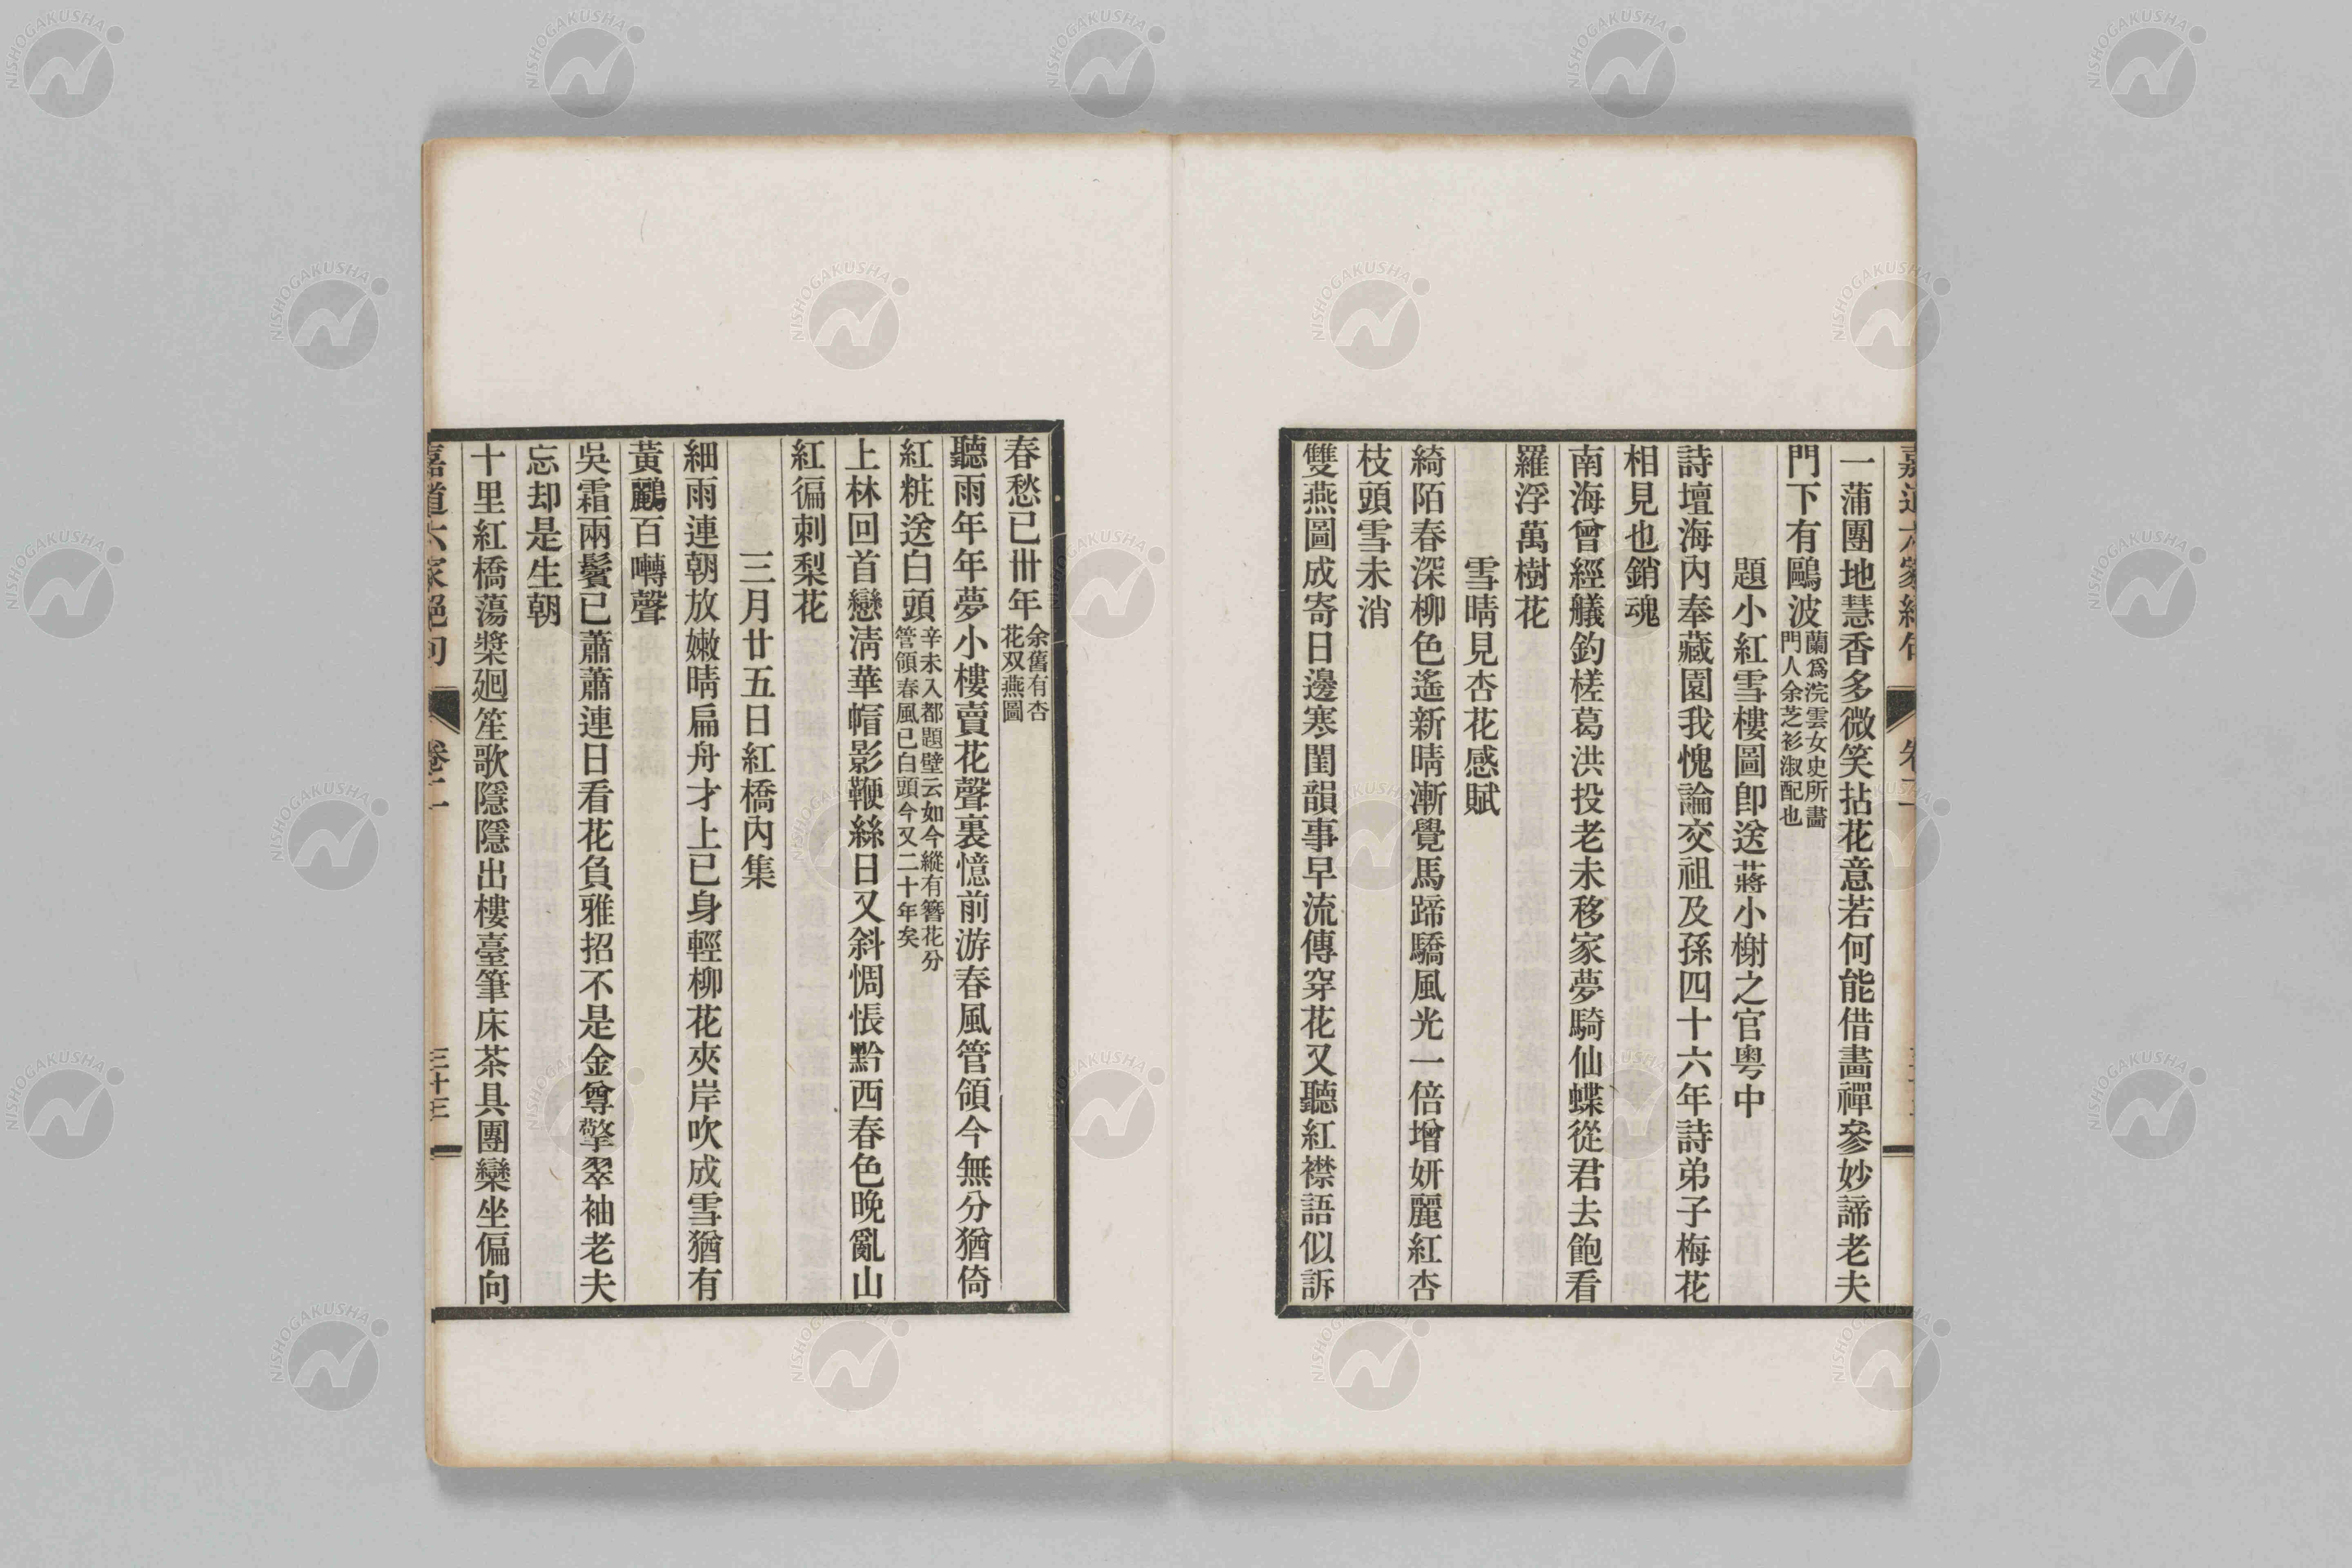 一蒲團地慧香多微笑拈花意若何能借畫禪參妙諦老夫
門下有鷗波蘭爲浣雲女史所畵門人余芝衫淑配也
題小紅雪樓圖卽送蔣小榭之官粵中
詩壇海內奉藏園我愧論交祖及孫四十六年詩弟子梅花
相見也銷魂
南海曾經艤釣槎葛洪投老未移家夢騎仙蝶從君去飽看
羅浮萬樹花
雪晴見杏花感賦
綺陌春深柳色遙新晴漸覺馬蹄驕風光一倍增妍麗紅杏
枝頭雪未消
雙燕圖成寄日邊寒閨韻事早流傳穿花又聽紅襟語似訴
春愁已卌年余舊有杏花双燕圖
聽雨年年夢小樓賣花聲裏憶前游春風管領今無分猶倚
紅粧送白頭辛未入都題壁云如今縱有簪花分管領春風已白頭今又二十年矣
上林回首戀淸華帽影鞭絲日又斜惆悵黔西春色晚亂山
紅徧刺梨花
三月廿五日紅橋內集
細雨連朝放嫩晴扁舟才上已身輕柳花夾岸吹成雪猶有
黃鸝百囀聲
吳霜兩鬢已蕭蕭連日看花負雅招不是金尊擎翠袖老夫
忘却是生朝
十里紅橋蕩槳廻笙歌隱隱出樓臺筆床茶具團欒坐偏向
嘉道六家絕句 卷二 三十三